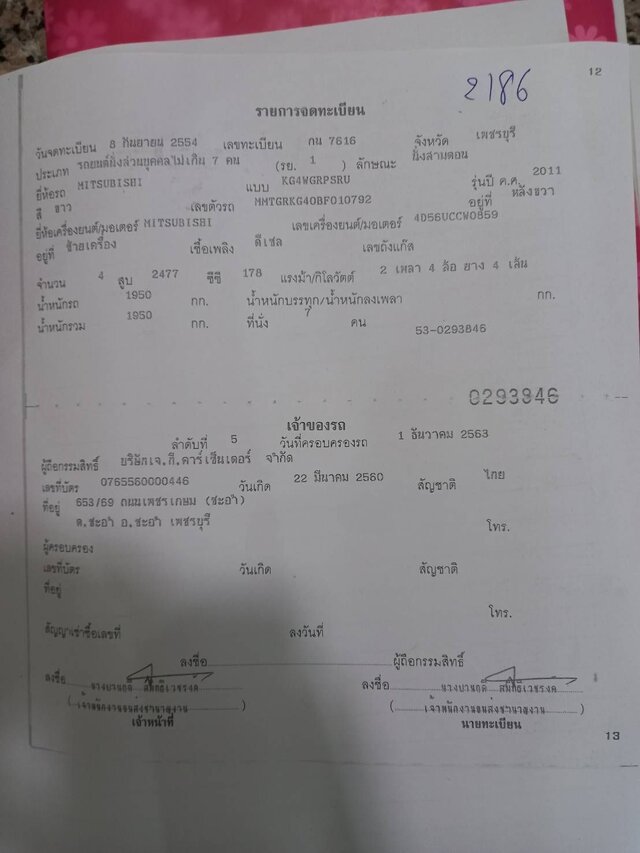 2186
12
รายการจดทะเบียน
วันจดทะเบียน 8 กันยายน 2554 เลขทะเบียน กน 7616 จังหวัด เพชรบุรี
ประเภท รถยนต์นั่งส่วนบุคคลไม่เกิน 7 คน (รย. 1 ) ลักษณะ นั่งสามตอน
ยี่ห้อรถ MITSUBISHI แบบ KG4WGRPSRU รุ่นปี ค.ศ. 2011
สี ขาว เลขตัวรถ MMTGRKG40BF010792 อยู่ที่ หลังขวา
ยี่ห้อเครื่องยนต์/มอเตอร์ MITSUBISHI เลขเครื่องยนต์/มอเตอร์ 4D56UCCW0859
อยู่ที่ ซ้ายเครื่อง เชื้อเพลิง ดีเซล เลขถังแก๊ส
จำนวน 4 สูบ 2477 ซีซี 178 แรงม้า/กิโลวัตต์ 2 เพลา 4 ล้อ ยาง 4 เส้น
น้ำหนักรถ 1950 กก. น้ำหนักบรรทุก/น้ำหนักลงเพลา กก.
น้ำหนักรวม 1950 กก. ที่นั่ง 7 คน
53-0293846
0293846
เจ้าของรถ
ลำดับที่ 5 วันที่ครอบครองรถ 1 ธันวาคม 2563
ผู้ถือกรรมสิทธิ์ บริษัทเจ.ที.คาร์เซ็นเตอร์ จำกัด
เลขที่บัตร 0765560000446 วันเกิด 22 มีนาคม 2560 สัญชาติ ไทย
ที่อยู่ 653/69 ถนนเพชรเกษม (ชะอำ)
ต.ชะอำ อ.ชะอำ เพชรบุรี
โทร.
ผู้ครอบครอง
เลขที่บัตร วันเกิด สัญชาติ
ที่อยู่
โทร.
สัญญาเช่าซื้อเลขที่ ลงวันที่
ลงชื่อ ผู้ถือกรรมสิทธิ์
ลงชื่อ ลงชื่อ
(เจ้าพนักงานขนส่งชำนาญงาน) (เจ้าพนักงานขนส่งชำนาญงาน)
เจ้าหน้าที่ นายทะเบียน
13